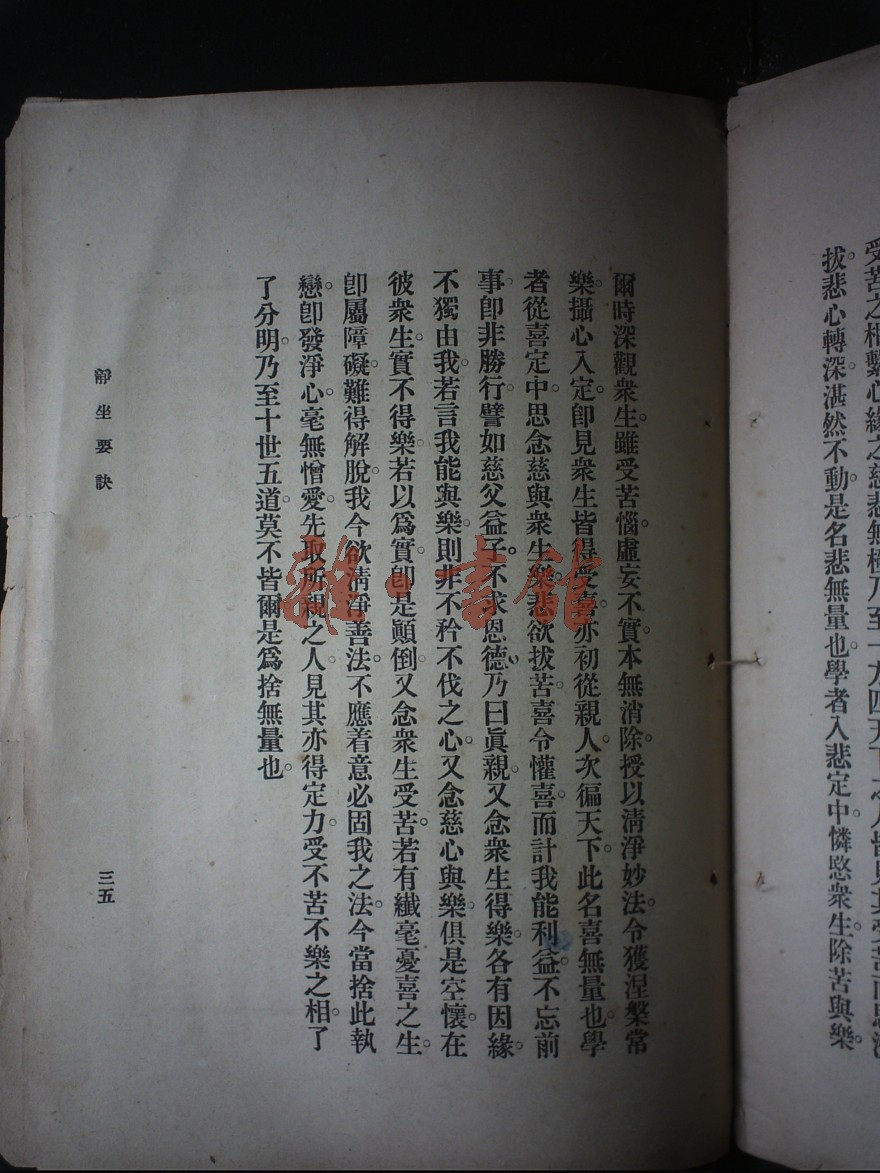 拔悲心轉深。湛然不動。是名悲無量也。學者入悲定中。憐愍衆生。除苦與樂。
爾時深觀衆生。雖受苦惱。虛妄不實。本無消除。授以淸淨妙法。令獲涅槃常
樂。攝心入定。卽見衆生皆得受喜。亦初從親人。次徧天下。此名喜無量也。學
者從喜定中。思念慈與衆生樂。悲欲拔苦。喜令懽喜。而計我能利益。不忘前
事。卽非勝行。譬如慈父益子。不求恩德。乃曰眞親。又念衆生得樂。各有因緣。
不獨由我。若言我能與樂。則非不矜不伐之心。又念慈心與樂。俱是空懷。在
彼衆生。實不得樂。若以爲實。卽是顚倒。又念衆生受苦。若有纖毫憂喜之生。
卽屬障礙。難得解脫。我今欲淸淨善法。不應着意必固我之法。今當捨此執
戀。卽發淨心。毫無憎愛。先取所親之人。見其亦得定力。受不苦不樂之相。了
了分明。乃至十世五道。莫不皆爾。是爲捨無量也。
靜坐要訣
三五
雜·書館